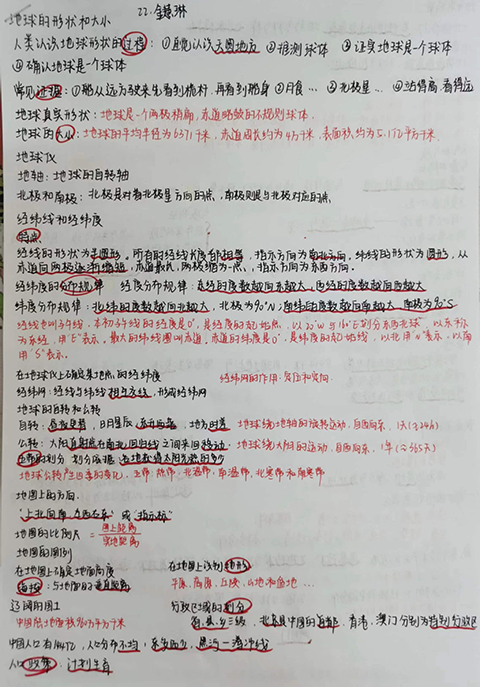 22.
地球的形状和大小
人类认识地球形状的过程：①直觉认识天圆地方 ②推测球体 ③证实地球是个球体
④确认地球是个球体
常见证据：①船从远方驶来先看到桅杆，再看到船身 ②月食… ③北极星… ④站得高看得远
地球真实形状：地球是一个两极稍扁，赤道略鼓的不规则球体.
地球的大小：地球的平均半径为6371千米，赤道周长约为4万千米，表面积约为5.1亿平方千米.
地球仪
地轴：地球的自转轴
北极和南极：北极是对着北极星方向的点，南极则是与北极对应的点
经纬线和经纬度
特点
经线的形状为半圆形，所有的经线长度都相等，指示方向为南北方向，纬线的形状为圆形，从
赤道向两极逐渐缩短，赤道最长，两极缩为一点，指示方向为东西方向.
经纬度的分布规律 经度分布规律：东经的度数越向东越大，西经的度数越向西越大
纬度分布规律：北纬的度数越向北越大，北极为90°N；南纬的度数越向南越大，南极为90°S
经线也叫子午线，本初子午线的经度是0°，是经度的起始点，以20°W与160°E划分东西半球，以东称
为东经，用"E"表示，最大的纬线圈叫赤道，赤道的纬度是0°，是纬度的起始线，以北用"N"表示，以南用
"S"表示.
在地球仪上确定某地点的经纬度 经纬网的作用：定位和定向.
经纬网：经线与纬线相互交织，形成经纬网
地球的自转和公转
自转：昼夜更替，日月星辰东升西落，地方时差 地球绕地轴的旋转运动，自西向东，1天(≈24h)
公转：太阳直射点在南北回归线之间来回移动. 地球绕太阳的运动，自西向东，1年(≈365天)
五带的划分 划分依据：各地获得太阳光热的多少
地球公转产生四季的变化，五带：热带，北温带，南温带，北寒带和南寒带
地图上的方向
"上北下南，左西右东"或"指示标"
地图的比例尺=图上距离/实地距离
地图的图例
在地图上确定地面高度 在地图上识别地形
海拔：与海面的垂直距离 平原，高原，丘陵，山地和盆地…
辽阔的国土 行政区域的划分
中国陆地面积为960万平方千米 省，县，乡三级，北京是中国的首都，香港，澳门分别为特别行政区
中国人口有14亿，人口分布不均，东多西少，黑河—腾冲线
人口政策：计划生育